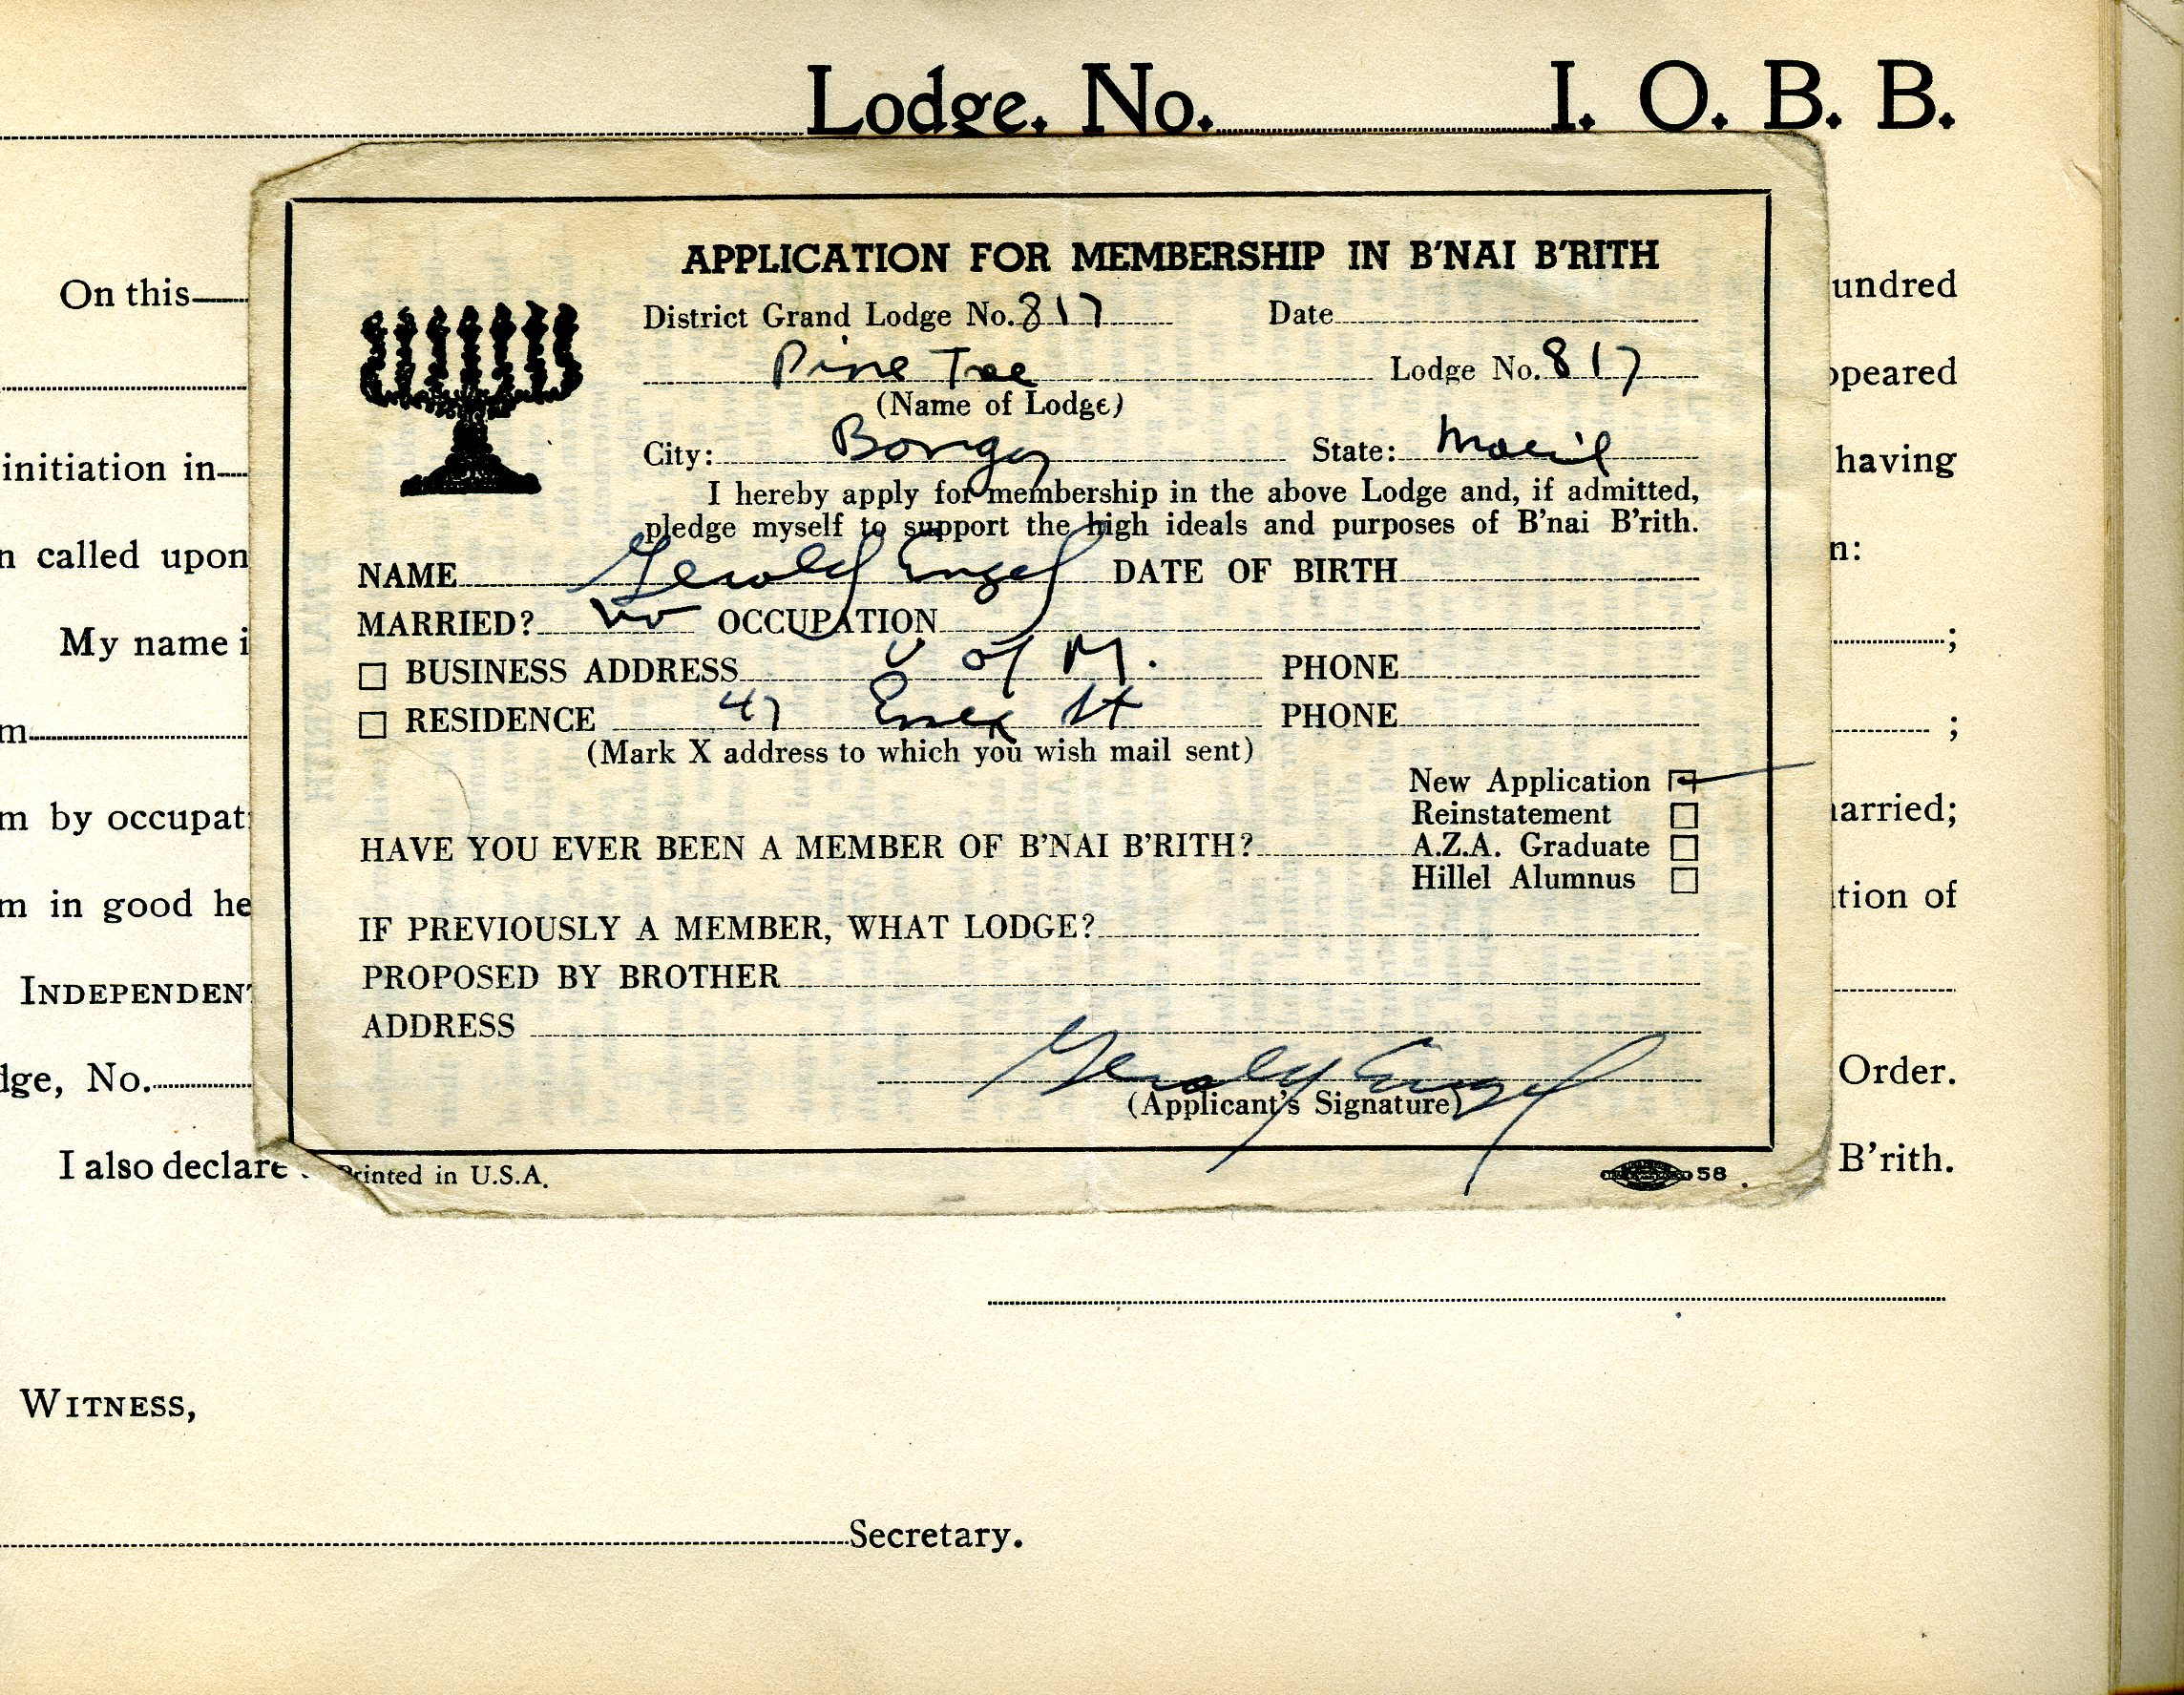 Lodge, No. I. O. B. B.
On this
undred
ppeared
initiation in
having
n called upon
n:
My name i
;
m
;
m by occupat
arried;
m in good he
tion of
INDEPENDENT
dge, No.
Order.
I also declare
B'rith.
WITNESS,
Secretary.
APPLICATION FOR MEMBERSHIP IN B'NAI B'RITH
District Grand Lodge No. 817 Date
Pine Tree Lodge No. 817
(Name of Lodge)
City: Bangor State: Maine
I hereby apply for membership in the above Lodge and, if admitted,
pledge myself to support the high ideals and purposes of B'nai B'rith.
NAME Gerald Engel DATE OF BIRTH
MARRIED? no OCCUPATION
BUSINESS ADDRESS U of M. PHONE
RESIDENCE 47 Essex St PHONE
(Mark X address to which you wish mail sent)
New Application
Reinstatement
HAVE YOU EVER BEEN A MEMBER OF B'NAI B'RITH? A.Z.A. Graduate
Hillel Alumnus
IF PREVIOUSLY A MEMBER, WHAT LODGE?
PROPOSED BY BROTHER
ADDRESS
Gerald Engel
(Applicant's Signature)
Printed in U.S.A. 58